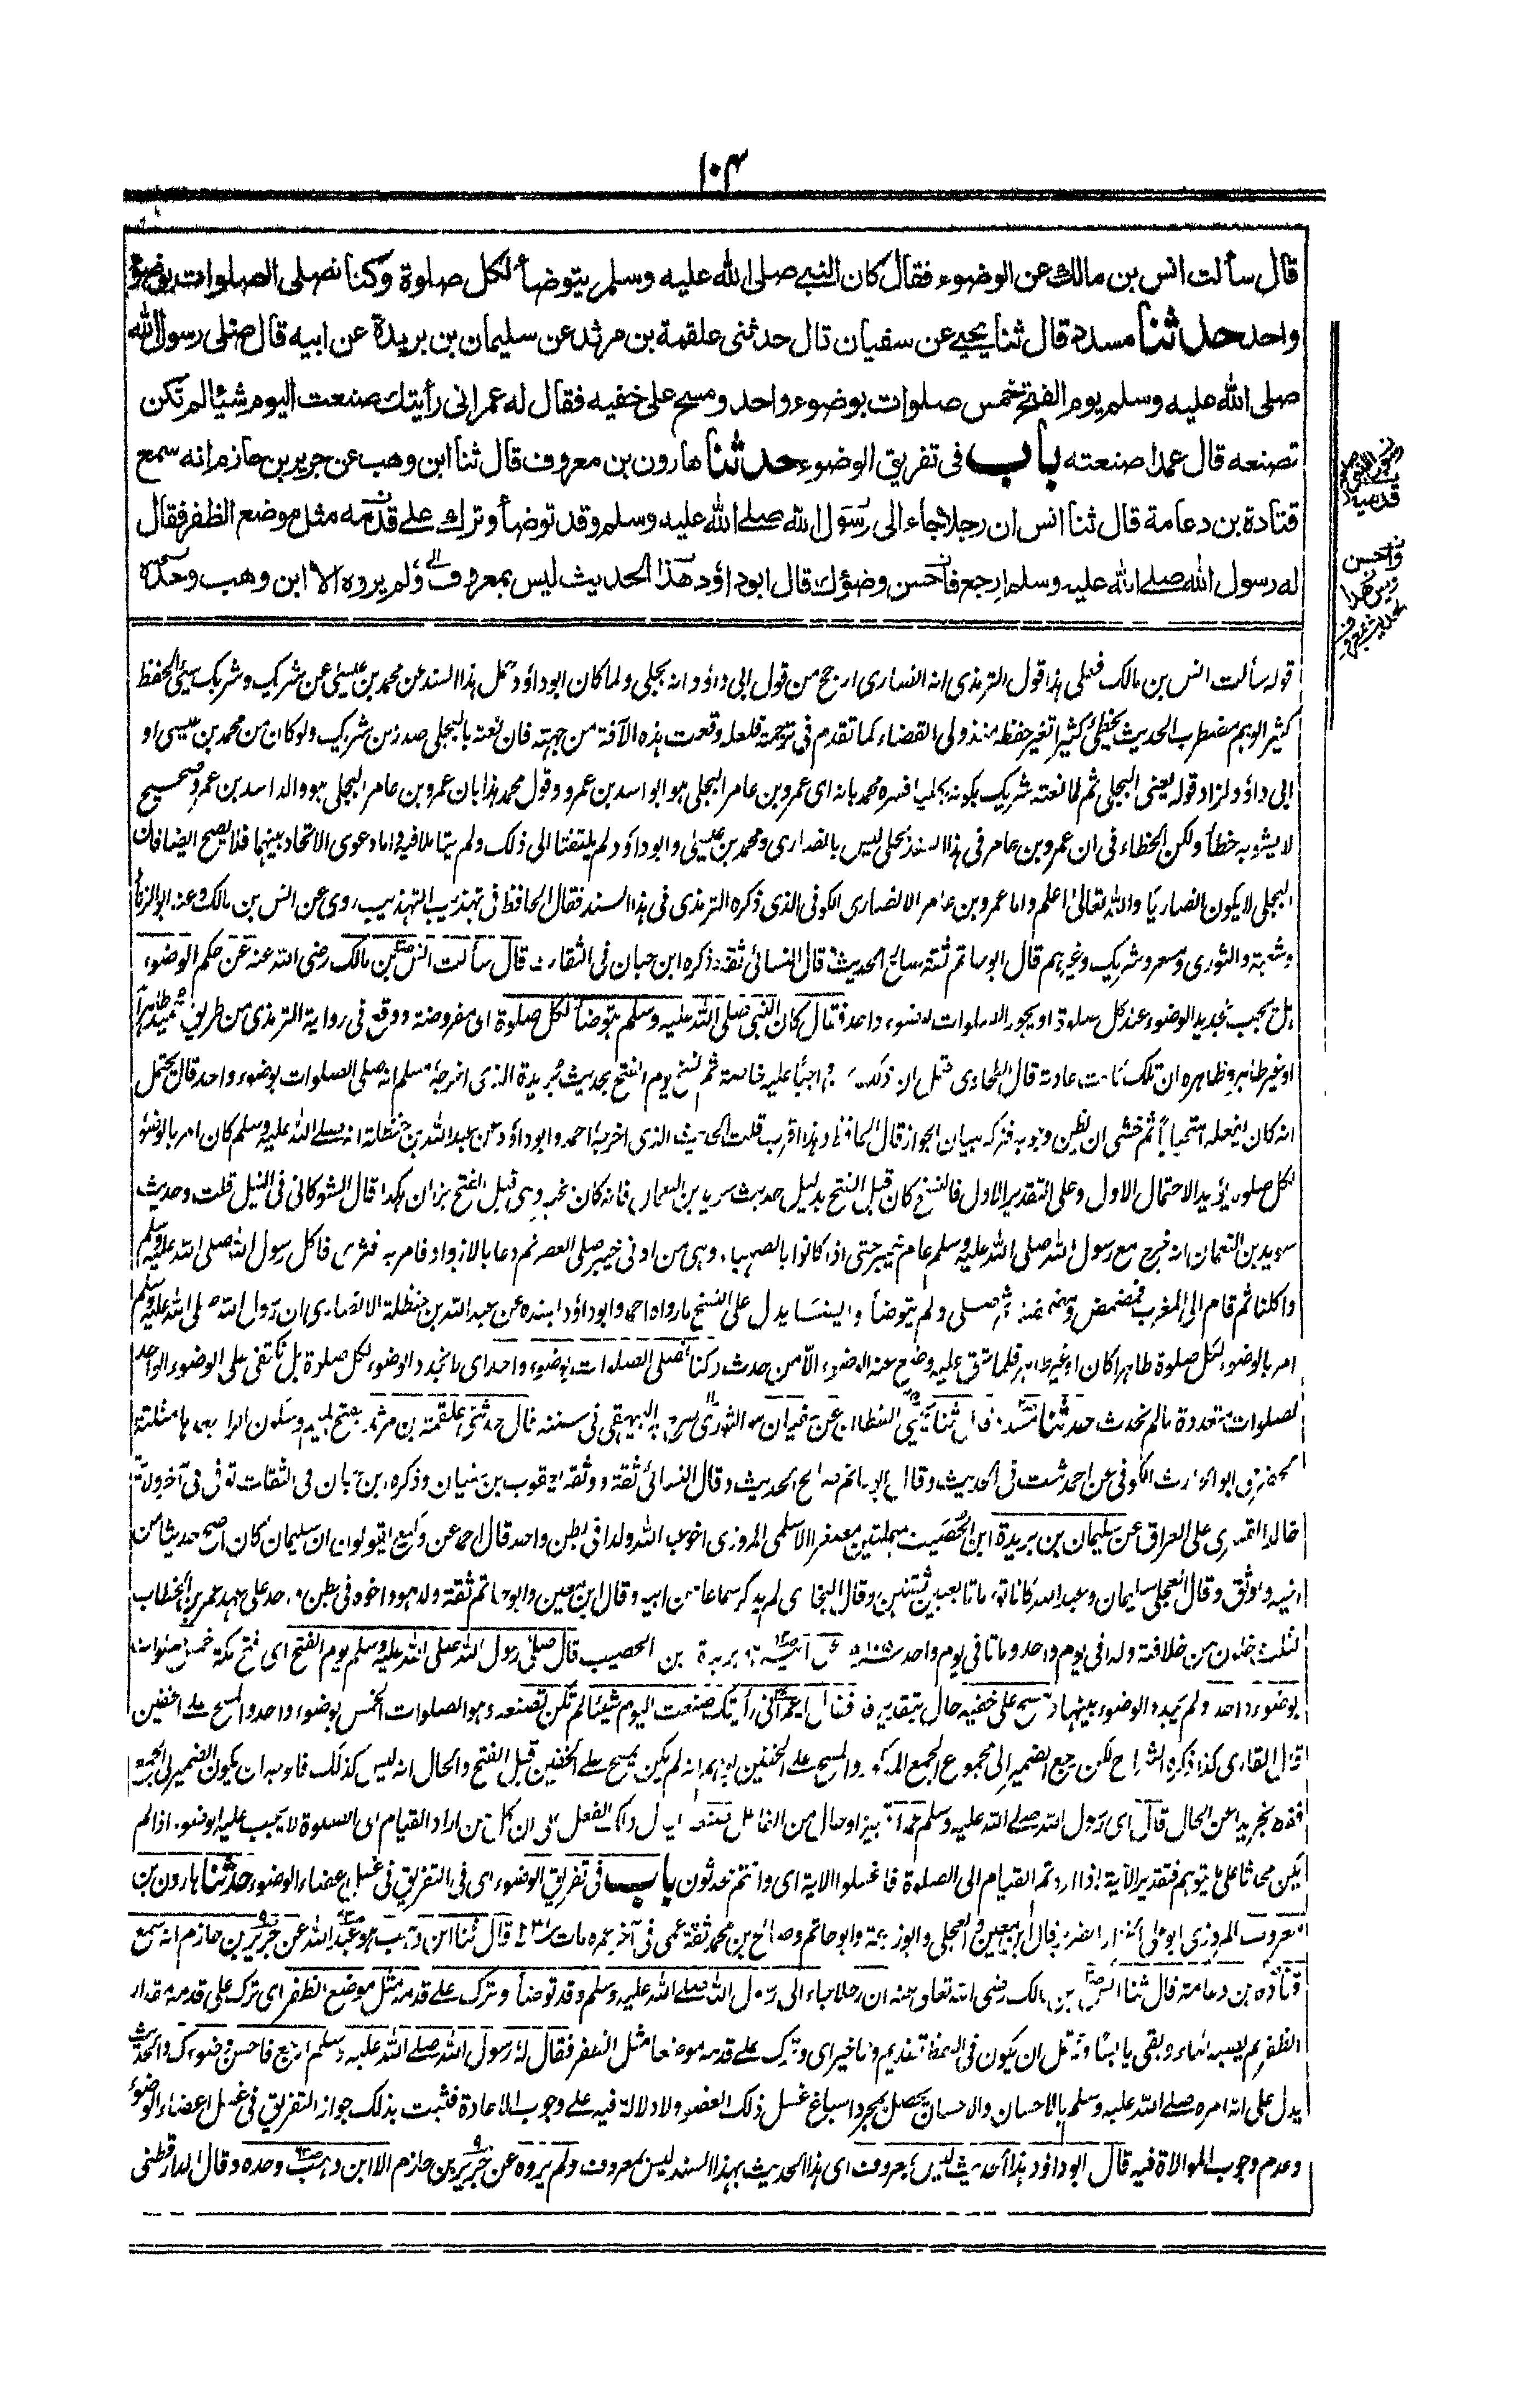 ١٠٣
قال سألت انس بن مالك عن الوضوء فقال كان النبي صلى الله عليه وسلم يتوضأ لكل صلوة وكنا نصلى الصلوات بوضوء
واحد حدثنا مسدد قال ثنا يحيى عن سفيان قال حدثنى علقمة بن مرثد عن سليمان بن بريدة عن ابيه قال صلى رسول الله
صلى الله عليه وسلم يوم الفتح خمس صلوات بوضوء واحد ومسح على خفيه فقال له عمر انى رأيتك صنعت اليوم شيئا لم تكن
تصنعه قال عمدا صنعته باب فى تفريق الوضوء حدثنا هارون بن معروف قال ثنا ابن وهب عن جرير بن حازم انه سمع
قتادة بن دعامة قال ثنا انس ان رجلا جاء الى رسول الله صلى الله عليه وسلم وقد توضأ وترك على قدمه مثل موضع الظفر فقال
له رسول الله صلى الله عليه وسلم ارجع فاحسن وضوءك قال ابوداؤد هذا الحديث ليس بمعروف ولم يروه الا ابن وهب وحده
قدميه
واحسن
قوله سألت انس بن مالك فعلى هذا قول الترمذى انه انصارى ارجح من قول ابى داؤد انه بجلى ولما كان ابوداؤد نقل هذا السند عن محمد بن عيسى عن شريك وشريك سيئ الحفظ
كثير الوهم مضطرب الحديث يخطئ كثيرا تغير حفظه منذ ولى القضاء كما تقدم فى ترجمة فلعله وقعت هذه الآفة من جهته فان نعته بالبجلى صدر من شريك ولو كان من محمد بن عيسى او
ابى داؤد لزاد قوله يعنى البجلى ثم لما نعته شريك بكونه بجليا فسره محمد بانه اى عمرو بن عامر البجلى هو ابو اسد بن عمرو وقول محمد هذا بان عمرو بن عامر البجلى هو والد اسد بن عمرو صحيح
لا يشوبه خطأ ولكن الخطاء فى ان عمرو بن عامر فى هذا السند بجلى ليس بانصارى ومحمد بن عيسى وابوداؤد لم يلتفتا الى ذلك ولم يتأملا فيه واما دعوى الاتحاد بينهما فلا يصح ايضا فان
البجلى لا يكون انصاريا والله تعالى اعلم واما عمرو بن عامر الانصارى الكوفى الذى ذكره الترمذى فى هذا السند فقال الحافظ فى تهذيب التهذيب روى عن انس بن مالك وعنه ابو الزناد
وشعبة والثورى ومسعر وشريك وغيرهم قال ابوحاتم ثقة صالح الحديث قال النسائى ثقة ذكره ابن حبان فى الثقات قال سألت انس بن مالك رضى الله عنه عن حكم الوضوء
هل يجب تجديد الوضوء عند كل صلوة او يجوز الصلوات بوضوء واحد فقال كان النبى صلى الله عليه وسلم يتوضأ لكل صلوة اى مفروضة ووقع فى رواية الترمذى من طريق حميد طاهرا
او غير طاهر وظاهره ان تلك كانت عادته قال الطحاوى يحتمل ان ذلك كان واجبا عليه خاصة ثم نسخ يوم الفتح بحديث بريدة الذى اخرجه مسلم انه صلى الصلوات بوضوء واحد قال يحتمل
انه كان يفعله استحبابا ثم خشى ان يظن وجوبه فتركه لبيان الجواز قال الحافظ وهذا اقرب قلت الحديث الذى اخرجه احمد وابوداؤد عن عبد الله بن حنظلة انه صلى الله عليه وسلم كان امر بالوضوء
لكل صلوة يؤيد الاحتمال الاول وعلى التقدير الاول فالنسخ كان قبل الفتح بدليل حديث سويد بن النعمان فانه كان بخيبر وهى قبل الفتح بزمان هكذا قال الشوكانى فى النيل قلت وحديث
سويد بن النعمان انه خرج مع رسول الله صلى الله عليه وسلم عام خيبر حتى اذا كانوا بالصهباء وهى من ادنى خيبر صلى العصر ثم دعا بالازواد فامر به فثرى فاكل رسول الله صلى الله عليه وسلم
واكلنا ثم قام الى المغرب فمضمض ومضمضنا ثم صلى ولم يتوضأ وايضا يدل على النسخ ما رواه احمد وابوداؤد بسنده عن عبد الله بن حنظلة الانصارى ان رسول الله صلى الله عليه وسلم
امر بالوضوء لكل صلوة طاهرا كان او غير طاهر فلما شق عليه وضع عنه الوضوء الا من حدث وكنا نصلى الصلوات بوضوء واحد اى لا نجدد الوضوء لكل صلوة بل نكتفى على الوضوء الواحد
لصلوات متعددة ما لم نحدث حدثنا مسدد قال ثنا يحيى القطان عن سفيان هو الثورى صرح به البيهقى فى سننه قال حدثنى علقمة بن مرثد بفتح الميم وسكون الراء بعدها مثلثة
الحضرمى ابو الحارث الكوفى عن احمد ثبت فى الحديث وقال ابوحاتم صالح الحديث وقال النسائى ثقة ووثقه يعقوب بن سفيان وذكره ابن حبان فى الثقات توفى فى آخر ولاية
خالد القسرى على العراق عن سليمان بن بريدة ابن الحصيب بمهملتين مصغرا الاسلمى المروزى اخو عبد الله ولدا فى بطن واحد قال احمد عن وكيع يقولون ان سليمان كان اصح حديثا من
اخيه واوثق وقال العجلى سليمان وعبد الله كانا توأما تابعيين ثقتين وقال البخارى لم يذكر سماعا من ابيه وقال ابن معين وابوحاتم ثقة ولد هو واخوه فى بطن واحد على عهد عمر بن الخطاب
لثلث خلون من خلافته ولدا فى يوم واحد وماتا فى يوم واحد سنة ١٠٥ عن ابيه بريدة بن الحصيب قال صلى رسول الله صلى الله عليه وسلم يوم الفتح اى فتح مكة خمس صلوات
بوضوء واحد ولم يجدد الوضوء بينها ومسح على خفيه حال بتقدير قد فقال له عمر انى رأيتك صنعت اليوم شيئا لم تكن تصنعه وهو الصلوات الخمس بوضوء واحد والمسح على الخفين
قال القارى كذا ذكره الشراح لكن رجع الضمير الى مجموع الجمع المذكور والمسح على الخفين يوهم انه لم يكن يمسح على الخفين قبل الفتح والحال انه ليس كذلك فالوجه ان يكون الضمير الى الجمع
فقط بجردا عن الحال قال اى رسول الله صلى الله عليه وسلم عمدا تمييز او حال من الفاعل صنعته ذلك الفعل على ان كل من اراد القيام الى الصلوة لا يجب عليه الوضوء اذا لم
يكن محدثا على ما يتوهم فتقدير الآية اذا اردتم القيام الى الصلوة فاغسلوا الآية اى وانتم محدثون باب فى تفريق الوضوء اى فى التفريق فى غسل اعضاء الوضوء حدثنا هارون بن
معروف المروزى ابو على الخزاز الضرير قال ابن معين والعجلى وابوزرعة وابوحاتم وصالح بن محمد ثقة عمى فى آخر عمره مات سنة ٢٣١ قال ثنا ابن وهب هو عبد الله عن جرير بن حازم انه سمع
قتادة بن دعامة قال ثنا انس بن مالك رضى الله تعالى عنه ان رجلا جاء الى رسول الله صلى الله عليه وسلم وقد توضأ وترك على قدمه مثل موضع الظفر اى ترك على قدمه مقدار
الظفر لم يصبه الماء وبقى يابسا ويحتمل ان يكون فى اللفظ تقديم وتاخير اى وترك على قدمه موضعا مثل الظفر فقال له رسول الله صلى الله عليه وسلم ارجع فاحسن وضوءك والحديث
يدل على انه امره صلى الله عليه وسلم بالاحسان والاحسان يحصل بمجرد اسباغ غسل ذلك العضو ولا دلالة فيه على وجوب الاعادة فثبت بذلك جواز التفريق فى غسل اعضاء الوضوء
وعدم وجوب الموالاة فيه قال ابوداؤد هذا الحديث ليس بمعروف اى هذا الحديث بهذا السند ليس بمعروف ولم يروه عن جرير بن حازم الا ابن وهب وحده وقال الدارقطنى